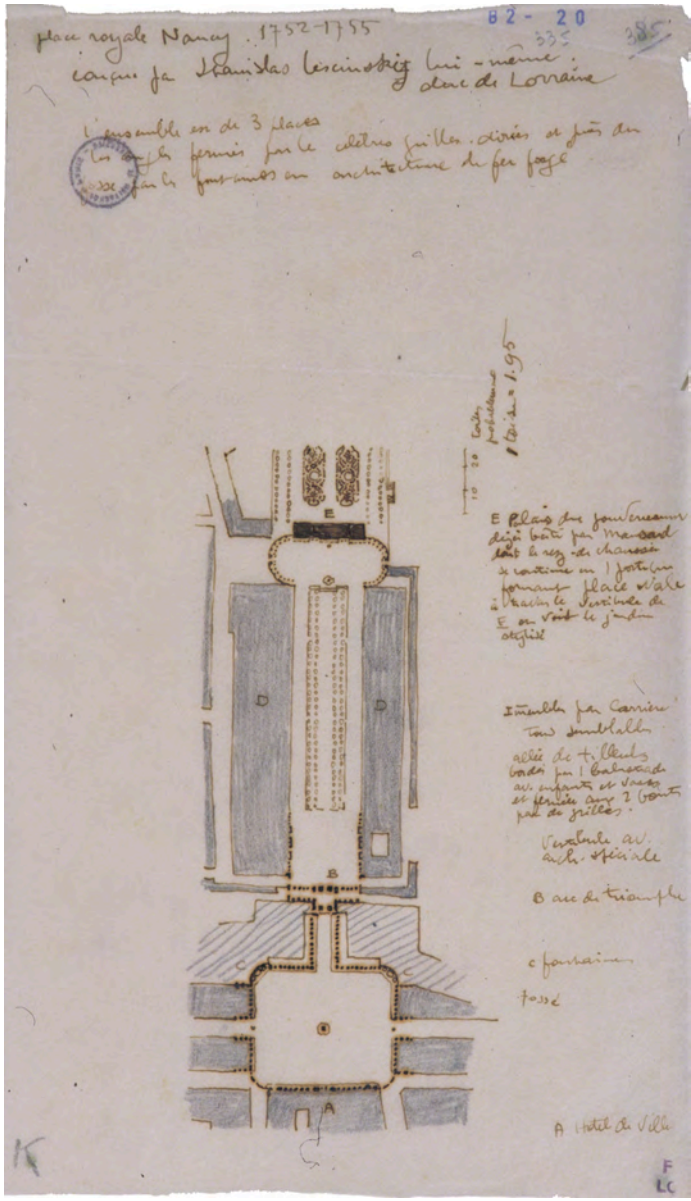 82-20
335
385
place royale Nancy. 1752-1755
conçue par Stanislas Lescinsky lui-même.
duc de Lorraine
L'ensemble est de 3 places
les angles fermés par le célèbres grilles dorées et près du
fossé par les fontaines en architecture de fer forgé
10 20 toises
1 toise = 1.95
E Palais du gouverneur
déjà bâti par Mansard
dont le rez-de-chaussée
se continue en 1 portique
formant place ovale
à travers le vestibule de
E on voit le jardin
stylisé
E
D
D
Immeubles par Carrière
tous semblables
allée de tilleuls
bordée par 1 balustrade
av. enfants et vases
et fermée aux 2 bouts
par de grilles.
Vestibule av.
arch. spéciale
B
B arc de triomphe
C
C
c fontaines
fossé
A
A Hotel de Ville
K
F
LC